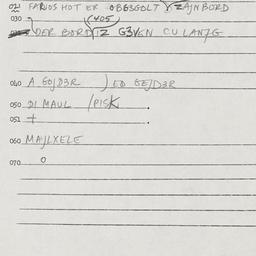 FARVOS HOT ER OBGEGOLT ZAJN BORD
030 (405
DER BORD IZ GEVEN CU LANJG
040 A GOJDER ) EO GEJDER
050 DI MAUL /PISK
051 +
060 MAJLXELE
070 O